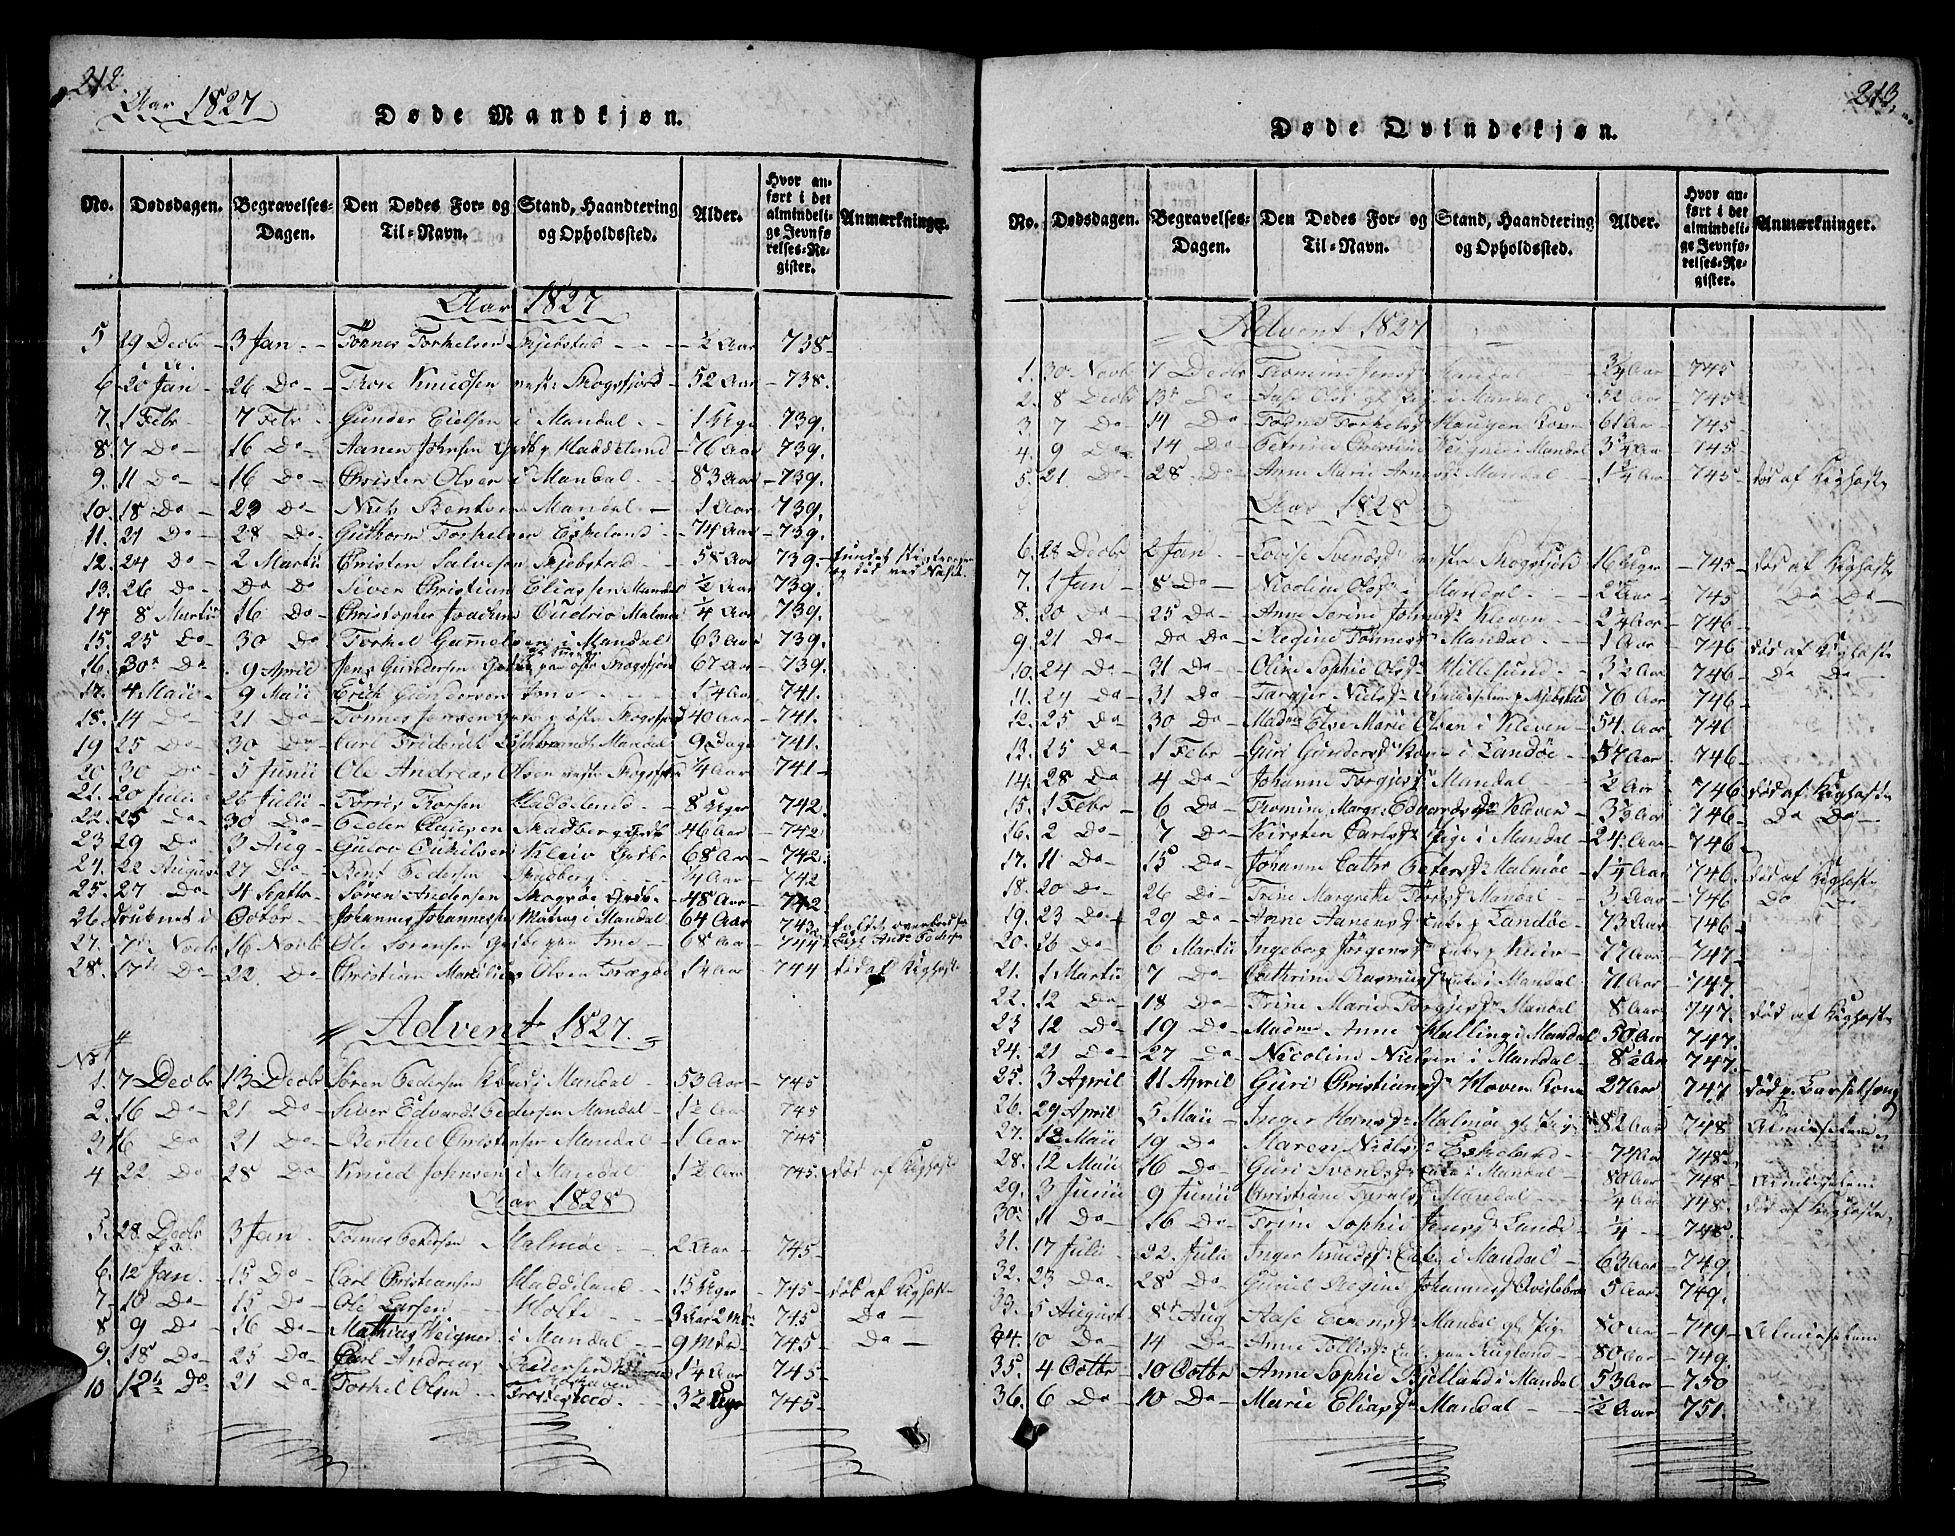 212.
Aar 1827
Døde Mandkjøn.
No. Dødsdagen. Begravelses-Dagen. Den Dødes For- og Til-Navn. Stand, Haandtering og Opholdssted. Alder. Hvor anført i det almindelige Jevnførelses-Register. Anmærkninger.
Aar 1827
5 29 Decbr 3 Jan Tönnes Torkelsen Skjebstad ½ Aar 738
6 20 Jan 26 Do Thore Knudsen Skogsfjord 52 Aar 738.
7. 1 Febr 7 Febr Gunder Eielsen i Mandal 739.
8. 7 Do 16 Do Aanen Johnsen Haddeland 76 Aar 739.
9. 11 Do 16 Do Christen Olsen i Mandal 83 Aar 739.
10. 18 Do 23 Do Niels Bentsen Mandal 1 Aar 739.
11. 21 Do 28 Do Guthorm Torkelsen Eskeland 74 Aar 739.
12. 24 Do 2 Martii Christen Salvesen Skjebstad 58 Aar 739
13. 26 Do Do Do Siver Christian Eliassen Mandal ½ Aar 739.
14 8 Martii 16 Do Christopher Joachim Malmöe ¼ Aar 739.
15. 25 Do 30 Do Torkel Gumelsen i Mandal 63 Aar 739.
16. 30 Do 9 April Jens Gundersen Skogsfjord 67 Aar 739.
17. 4 Maii 9 Maii Erich Gundersen Ime 1¼ Aar 741.
18. 14 Do 21 Do Tönnes Jensen Skogsfjord 40 Aar 741.
19 25 Do 30 Do Carl Friderich Mandal 9 Dage 741.
20 30 Do 5 Junii Ole Andreas Olsen Skogsfjord ¼ Aar 741
21. 20 Julii 26 Julii Torris Thorsen Haddeland 8 Uger 742.
22. 25 Do 30 Do Peder Clausen 46 Aar 742
23 29 Do 3 Aug Gulov Kleiv 68 Aar 742.
24. 22 August 27 Do Bent Pedersen ¼ Aar 742
25. 27 Do 4 Septbr Søren Andersen Skogsøe 48 Aar 742
26. Octbr Johannes Johannessen i Mandal 64 Aar 743
27. 7 Novbr 16 Novbr Ole Sørensen Ime 68 Aar 744
28. 17 Do 22. Do Christian Marelius Olsen 1¼ Aar 744 død af Kighoste
Advent 1827.
1. 7 Decbr 13 Decbr Søren Pedersen i Mandal 53 Aar 745
2. 16 Do 21 Do Siver Edvard Pedersen Mandal 1½ Aar 745
3 16 Do 21 Do Berthel Christensen Mandal 1 Aar 745
4 22 Do 28 Do Knud Johnsen i Mandal 1½ Aar 745 død af Kighoste
Aar 1828
5. 28 Decbr 3 Jan Tönnes Pedersen Malmøe 2 Aar 745
6. 12 Jan. 15 Do Carl Christiansen Haddeland 15 Uger 745 død af Kighoste
7 10 Do 15 Do Ole Larsen Holte 3 Aar 2 Mdr 745 Do
8 9 Do 16 Do Mathias Weigner i Mandal 9 Mdr 745 Do
9. 18 Do 25 Do Carl Andreas Pedersen 1¼ Aar 745
10 12 Do 21 Do Torkel Olsen Frøstestad 32 Uger 745
213.
Døde Qvindekjøn.
No. Dødsdagen. Begravelses-Dagen. Den Dødes For- og Til-Navn. Stand, Haandtering og Opholdssted. Alder. Hvor anført i det almindelige Jevnførelses-Register. Anmærkninger.
Advent 1827
1. 30 Novb 7 Decbr Thomine Jensd Mandal ¾ Aar 745
2. 8 Decbr 13 Do Aase Olsd i Mandal 52 Aar 745
3. 7 Do 14 Do Tone Torkelsd Haugen Kone 61 Aar 745
4. 9 Do 14 Do Petrine Christine Weigner i Mandal 745
5. 21 Do 28 Do Anne Marie Mandal 745 død af Kighoste
Aar 1828
6. 28 Decbr 2 Jan Lovise Svendsd Skogsfjord 16 Uger 745 død af Kighoste
7. 1 Jan 8 Do Nicoline Olsd i Mandal 745 Do Do
8. 20 Do 25 Do Anne Serine Kleven 2¼ Aar 746
9. 21 Do Do Do Regine Tönnesd Mandal 1 Aar 746 død af Kighoste
10. 24 Do 31 Do Oline Sophie Olsd Hillesund 3½ Aar 746 Do Do
11. 24 Do 31 Do Targjer Nielsd Skjebstad 76 Aar 746
12. 25 Do 30 Do Mad. Else Marie Olsen i Kleven 54 Aar 746
13. 25 Do 1 Febr Guri Gundersd Kone i Landøe 57 Aar 746
14. 28 Do 4 Do Johanne Torgiersd Mandal ½ Aar 746 død af Kighoste
15. 1 Febr 6 Do Thomine Margr. Kleven 3½ Aar 746 Do Do
16. 2 Do 7 Do Kirsten Carlsd Pige i Mandal 24 Aar 746
17. 11 Do 15 Do Johanne Cathr Petersd Malmøe 1¼ Aar 746 død af Kighoste
18. 20 Do 26 Do Trine Margrethe Mandal 3 Aar 746 Do Do
19. 23 Do 29 Do Anne Aanensd Enke p Landøe 73 Aar 746
20. 26 Do 6 Martii Ingeborg Jörgensd Enke p Kleiv 77 Aar 747
21. 1 Martii 7 Do Cathrine Rasmusd Enke i Mandal 71 Aar 747.
22. 12 Do 18 Do Trine Marie Torgiersd Mandal 8 Aar 747. død af Kighoste
23 12 Do 19 Do Mad Anne Halling i Mandal 50 Aar 747.
24. 21 Do 27 Do Nicoline Nielsen i Mandal 8½ Aar 747.
25. 3 April 11 April Guri Christiansd Haven Kone 27 Aar 747 død p. Barselseng
26. 29 April 5 Maii Inger Hansd Malmøe 82 Aar 748 Almisselem
27. 12 Maii 19 Do Maren Nielsd Eskeland 74 Aar 748
28. 12 Maii 16 Do Guri Svendsd Enke i Mandal 80 Aar 748 Almisselem
29. 3 Junii 9 Junii Christiane Taralsd Mandal ¼ Aar 748. død af Kighoste
30. 11 Do 16 Do Trine Sophie Jensd Lande ¼ 748
31. 17 Julii 22. Julii Inger Knudsd Enke i Mandal 63 Aar 749.
32. 23 Do 28 Do Guriel Regine Johannesd 5 Aar 749.
33. 5 August 8 Aug Aase Mandal gl. Pige 80 Aar 749 Almisselem
34. 10 Do 14 Do Anne 80 Aar 749.
35. 4 Octbr 10 Octbr Anne Sophie Bjelland i Mandal 53 Aar 750
36. 6 Do 10 Do Marie Eliasd Mandal ½ Aar 751.